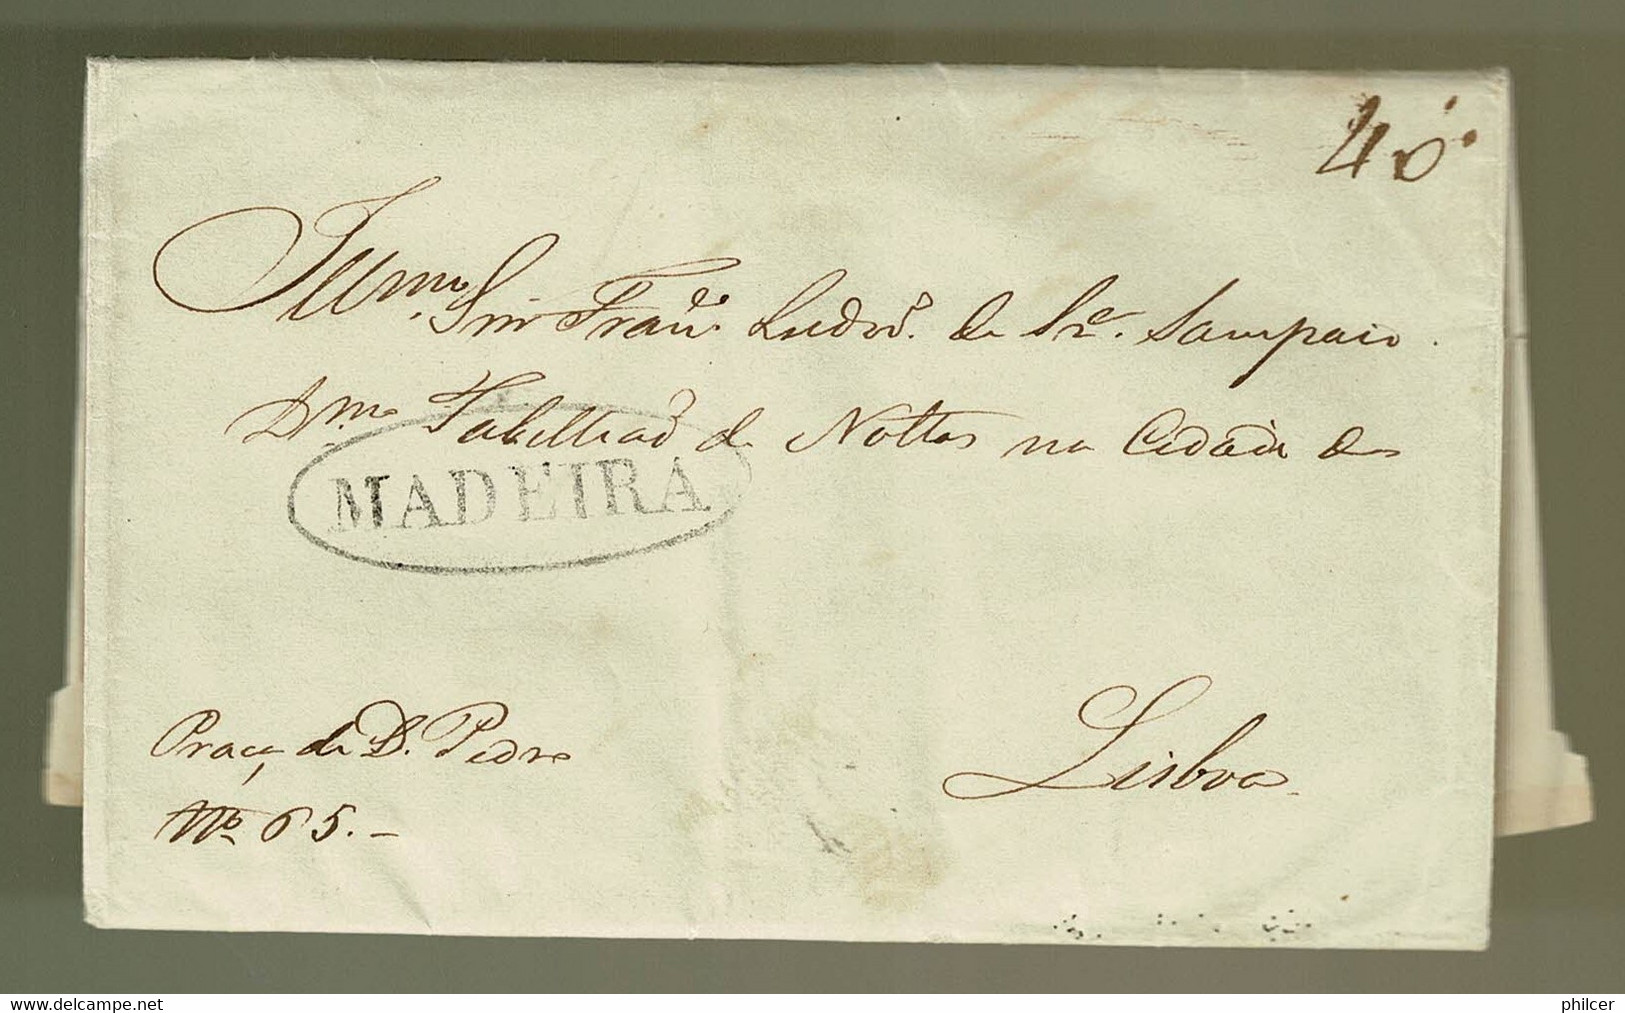 40
Illmo. Snr. Franco. Ludro. de Sza. Sampaio.
Dmo. Tabellião de Nottas na Cidade de
MADEIRA
Lisboa
Praça de D. Pedro
No. 65.
www.delcampe.net
philcer